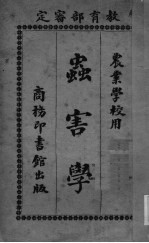 教育部審定
農業學校用
蟲害學
商務印書館出版